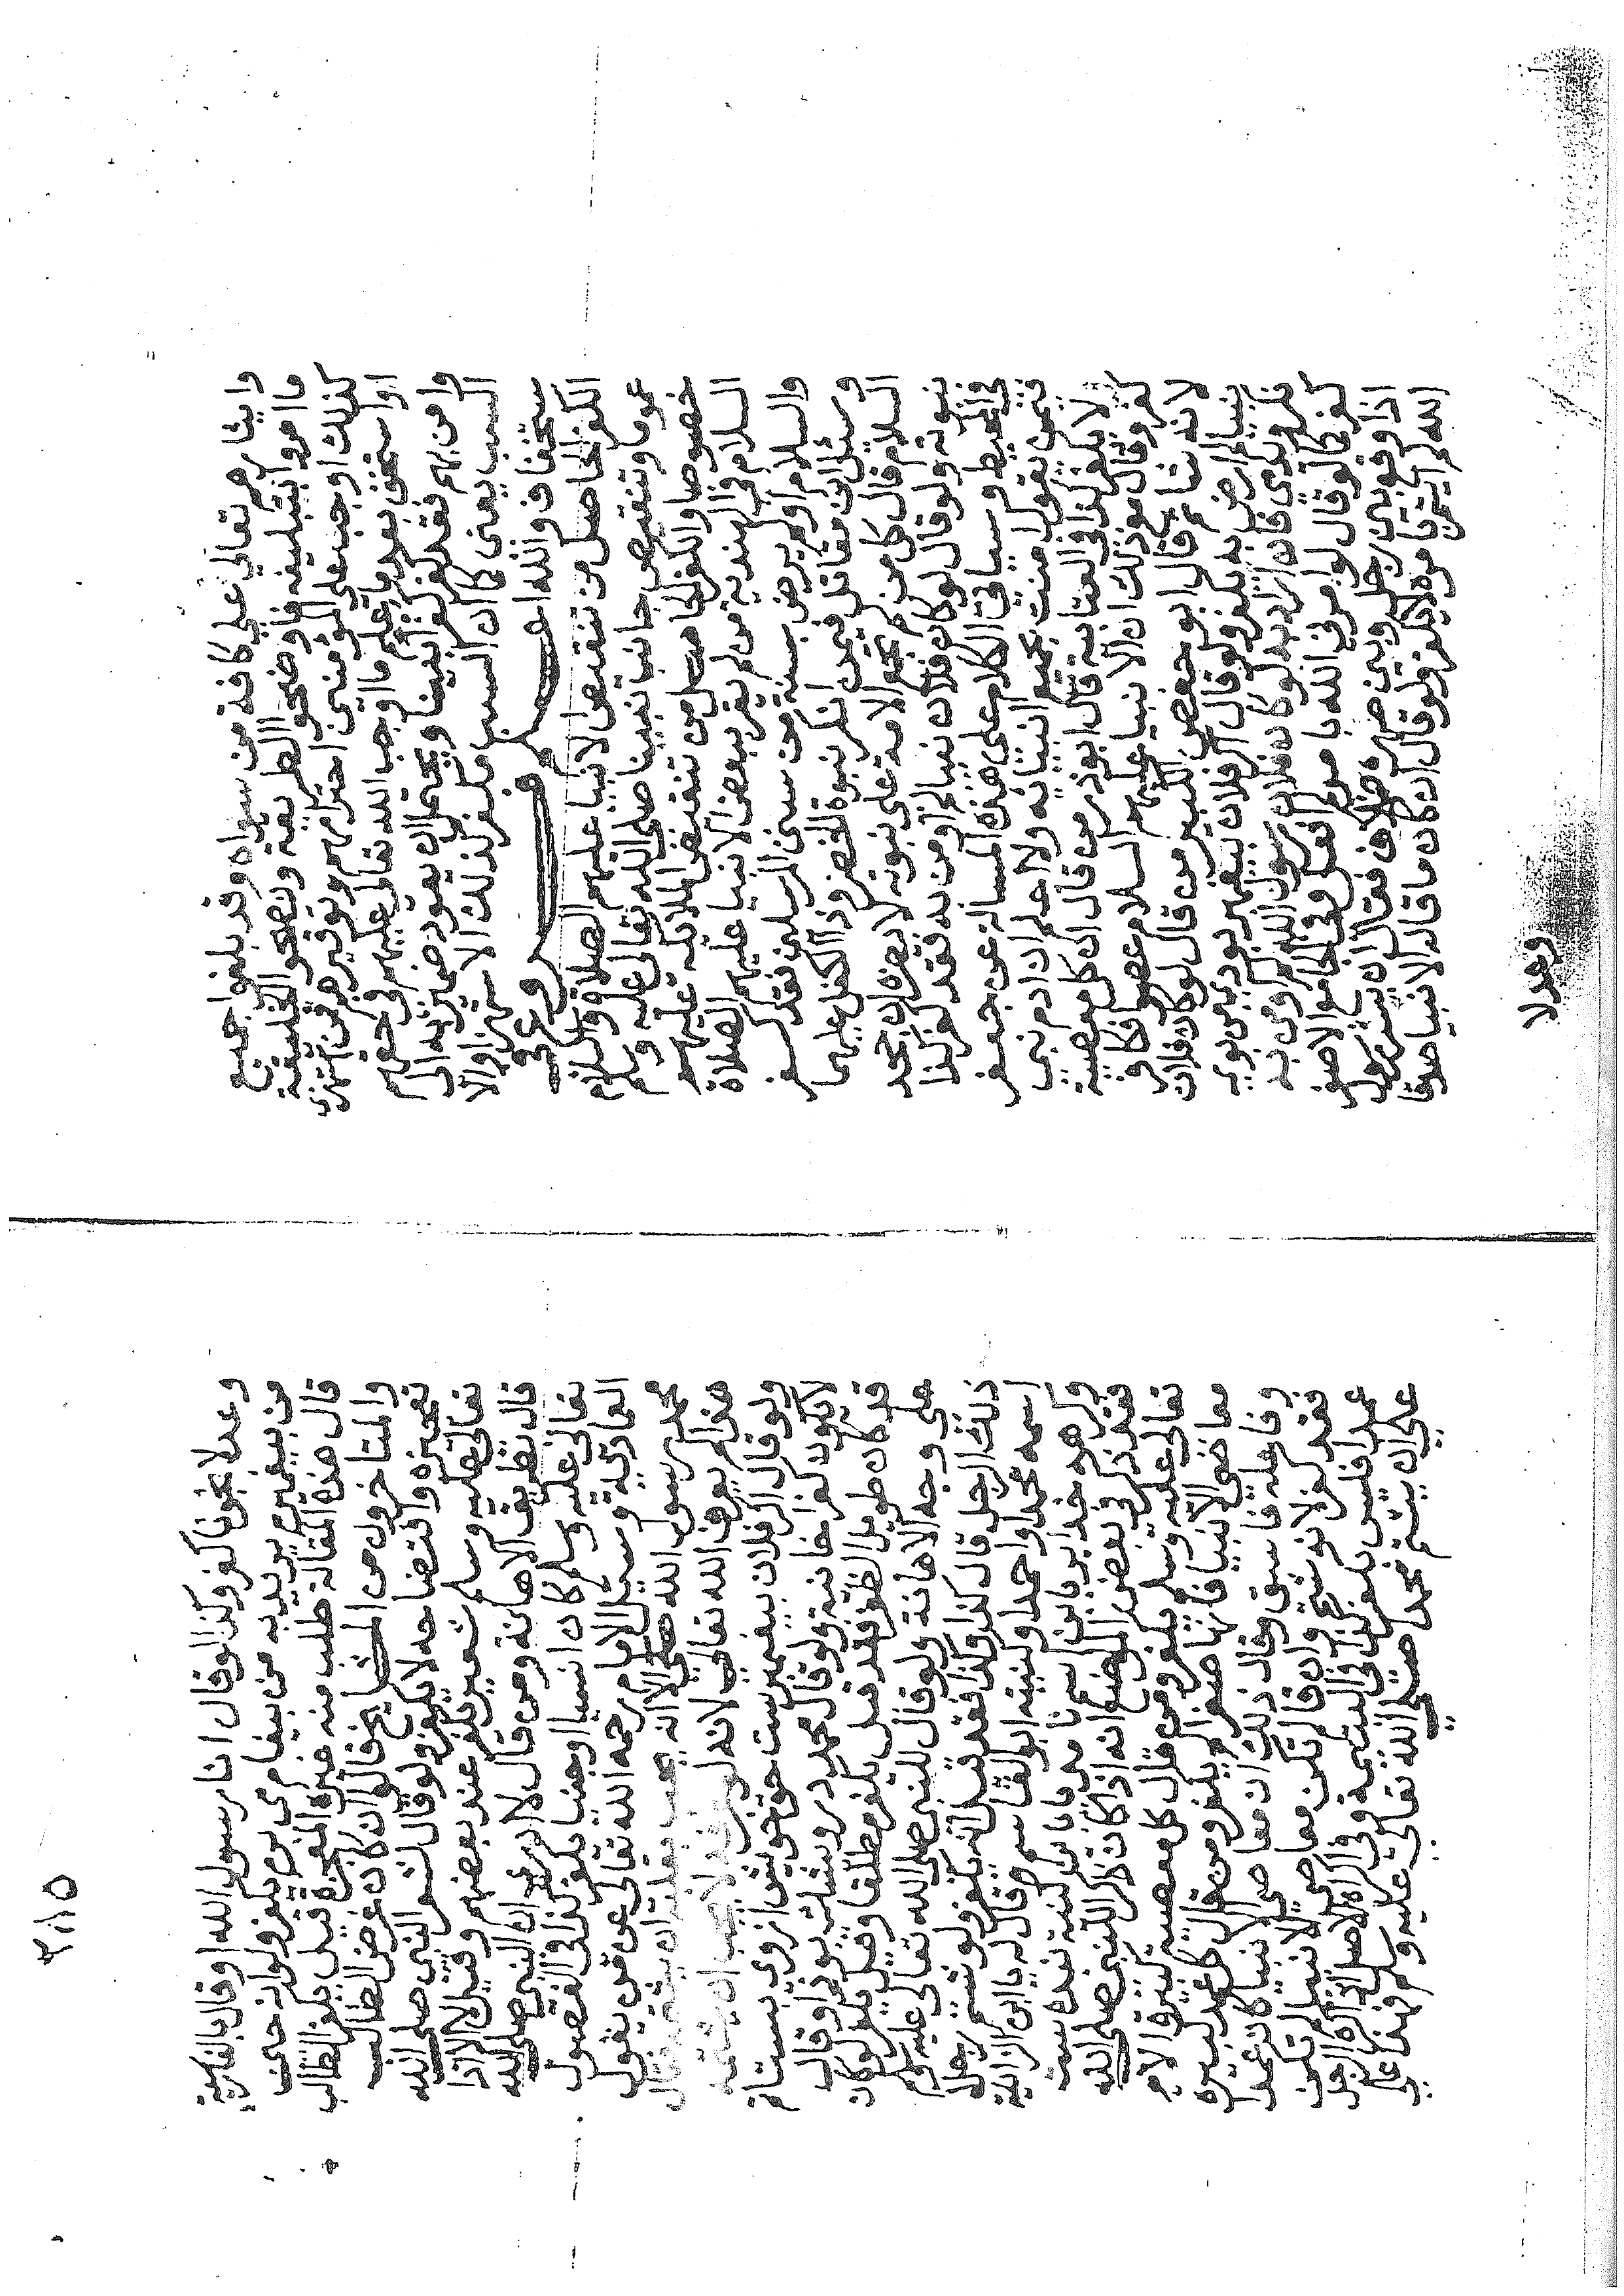 وايثارهم تعالى على كافة من سواه وقد بلغوا جميع
ما امروا بتبليغه فاوضحوا الطريقة ونصحوا الخليقة
كذلك اوجب على المؤمنين احترامهم وتوقيرهم فمن استهزا
او استخف بعد ما علم ما اوجب الله تعالى عليهم في حقهم
وامن بهم فقد كفر كفرا بينا ويحتمل ان يعود ضمير به الى
السبب يعني كان السبب مكفر كذلك الاستهزا والا
ستخفاف والله اعلم
الكفر الحاصل من تنقيص الانبيا عليهم الصلاة والسلام
عموما وتنقيص جانب نبينا صلى الله تعالى عليه وسلم
خصوصا والكفر الحاصل من تنقيص الملائكة عليهم
السلام في الهندية من لم يقر ببعض الانبيا عليهم الصلاة
والسلام او لم يرض بسنة من سنن المرسلين فقد كفر
وسئل ابن مقاتل فيمن انكر نبوة الخضر وذا الكفل عليهما
السلام قال كل من لم يجمع الامة على نبوته لا يضره ان جحد
نبوته ولو قال لو كان فلان نبيا لم اومن به فقد كفر كذا
في المحيط وسياق الكلام على هذه المسالة عن جعفر
فيمن يقول امنت بجميع انبيائه ولا اعلم ان ادم نبي
ام لا يكفر كذا في العتابية قال ابوذر من قال ان كل معصية
كفر وقال مع ذلك ان الانبيا عليهم السلام عصوا فكافر
لانه شاتم قال ابو حفص الكبير من قال لو كان فلان
نبيا لم ارض به يكفر ولو قال اكر فلان پيغمبر بودي من بوي
نكرويدي فان اراد به لو كان فلان رسول الله لم اومن به
كفر كما لو قال لو امرني الله بامر لم افعل وفي الجامع الاصغر
اذا وقع بين رجل وبين صهره خلاف فقال ان بشر رسول
الله لم ائتمر بامره لا يكفر ولو قال ان كان ما قاله الانبيا صدقا
وعدلا
٣١٥
وعدلا نجونا كفر وكذا لو قال انا رسول الله او قال بالفارسية
من پيغمبرم يريد به من پيغام مي برم يكفر ولو انه حين
قال هذه المقالة طلب منه غيره المعجزة قيل يكفر الطالب
والمتاخرون من المشايخ قالوا ان كان غرض الطالب
تعجيزه وافتضاحه لا يكفر ولو قال لشعر النبي صلى الله
تعالى عليه وسلم شعير يكفر عند بعضهم وقيل لا الا اذا
قال بطريق الاهانة ومن قال لا ادري ان النبي صلى الله
تعالى عليه وسلم كان انسيا او جنيا يكفر كذا في الفصول
العمادية وسئل الامام رحمه الله تعالى عمن يقول
محمد رسول الله
هذا لم يعرف الله تعالى لانه
ولو قال اكر فلان پيغمبرست حق خويش ازوي بستانم
لا يكون كفرا خانية ولو قال محمد درويشك بود او قال
قد كان طويل الظفر فقد قيل يكفر مطلقا وقيل يكفر لو كان
على وجه الاهانة ولو قال للنبي صلى الله تعالى عليه وسلم
ذلك الرجل قال كذا وكذا فقد قيل انه يكفر ولو شتم رجلا
اسمه محمد او احمد او كنيته ابو القاسم وقال له يا ابن الزانية
فقد ذكر في بعض المواضع انه اذا كان ذاكرا للنبي صلى الله
تعالى عليه وسلم يكفر ومن قال كل معصية كبيرة الا
معاصي الانبيا فانها صغاير لم يكفر ومن قال كل عمد كبيرة
وفاعله فاسق وقال مع ذلك ان معاصي الانبيا كانت عمدا
فقد كفر لانه شتم وان قال لم تكن معاصي الانبيا
عمدا فليس بكفر كذا في اليتيمة وفي اكراه الاصل اذا اكره الرجل
على ان يشتم محمدا صلى الله تعالى عليه وسلم فهذا على